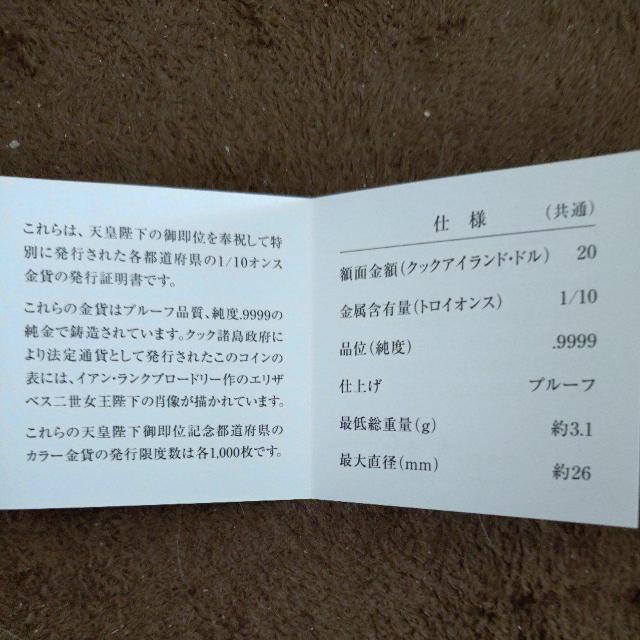 これらは、天皇陛下の御即位を奉祝して特
別に発行された各都道府県の1/10オンス
金貨の発行証明書です。
これらの金貨はプルーフ品質、純度.9999の
純金で鋳造されています。クック諸島政府に
より法定通貨として発行されたこのコインの
表には、イアン・ランクブロードリー作のエリザ
ベス二世女王陛下の肖像が描かれています。
これらの天皇陛下御即位記念都道府県の
カラー金貨の発行限度数は各1,000枚です。
仕様 (共通)
額面金額(クックアイランド・ドル) 20
金属含有量(トロイオンス) 1/10
品位(純度) .9999
仕上げ プルーフ
最低総重量(g) 約3.1
最大直径(mm) 約26